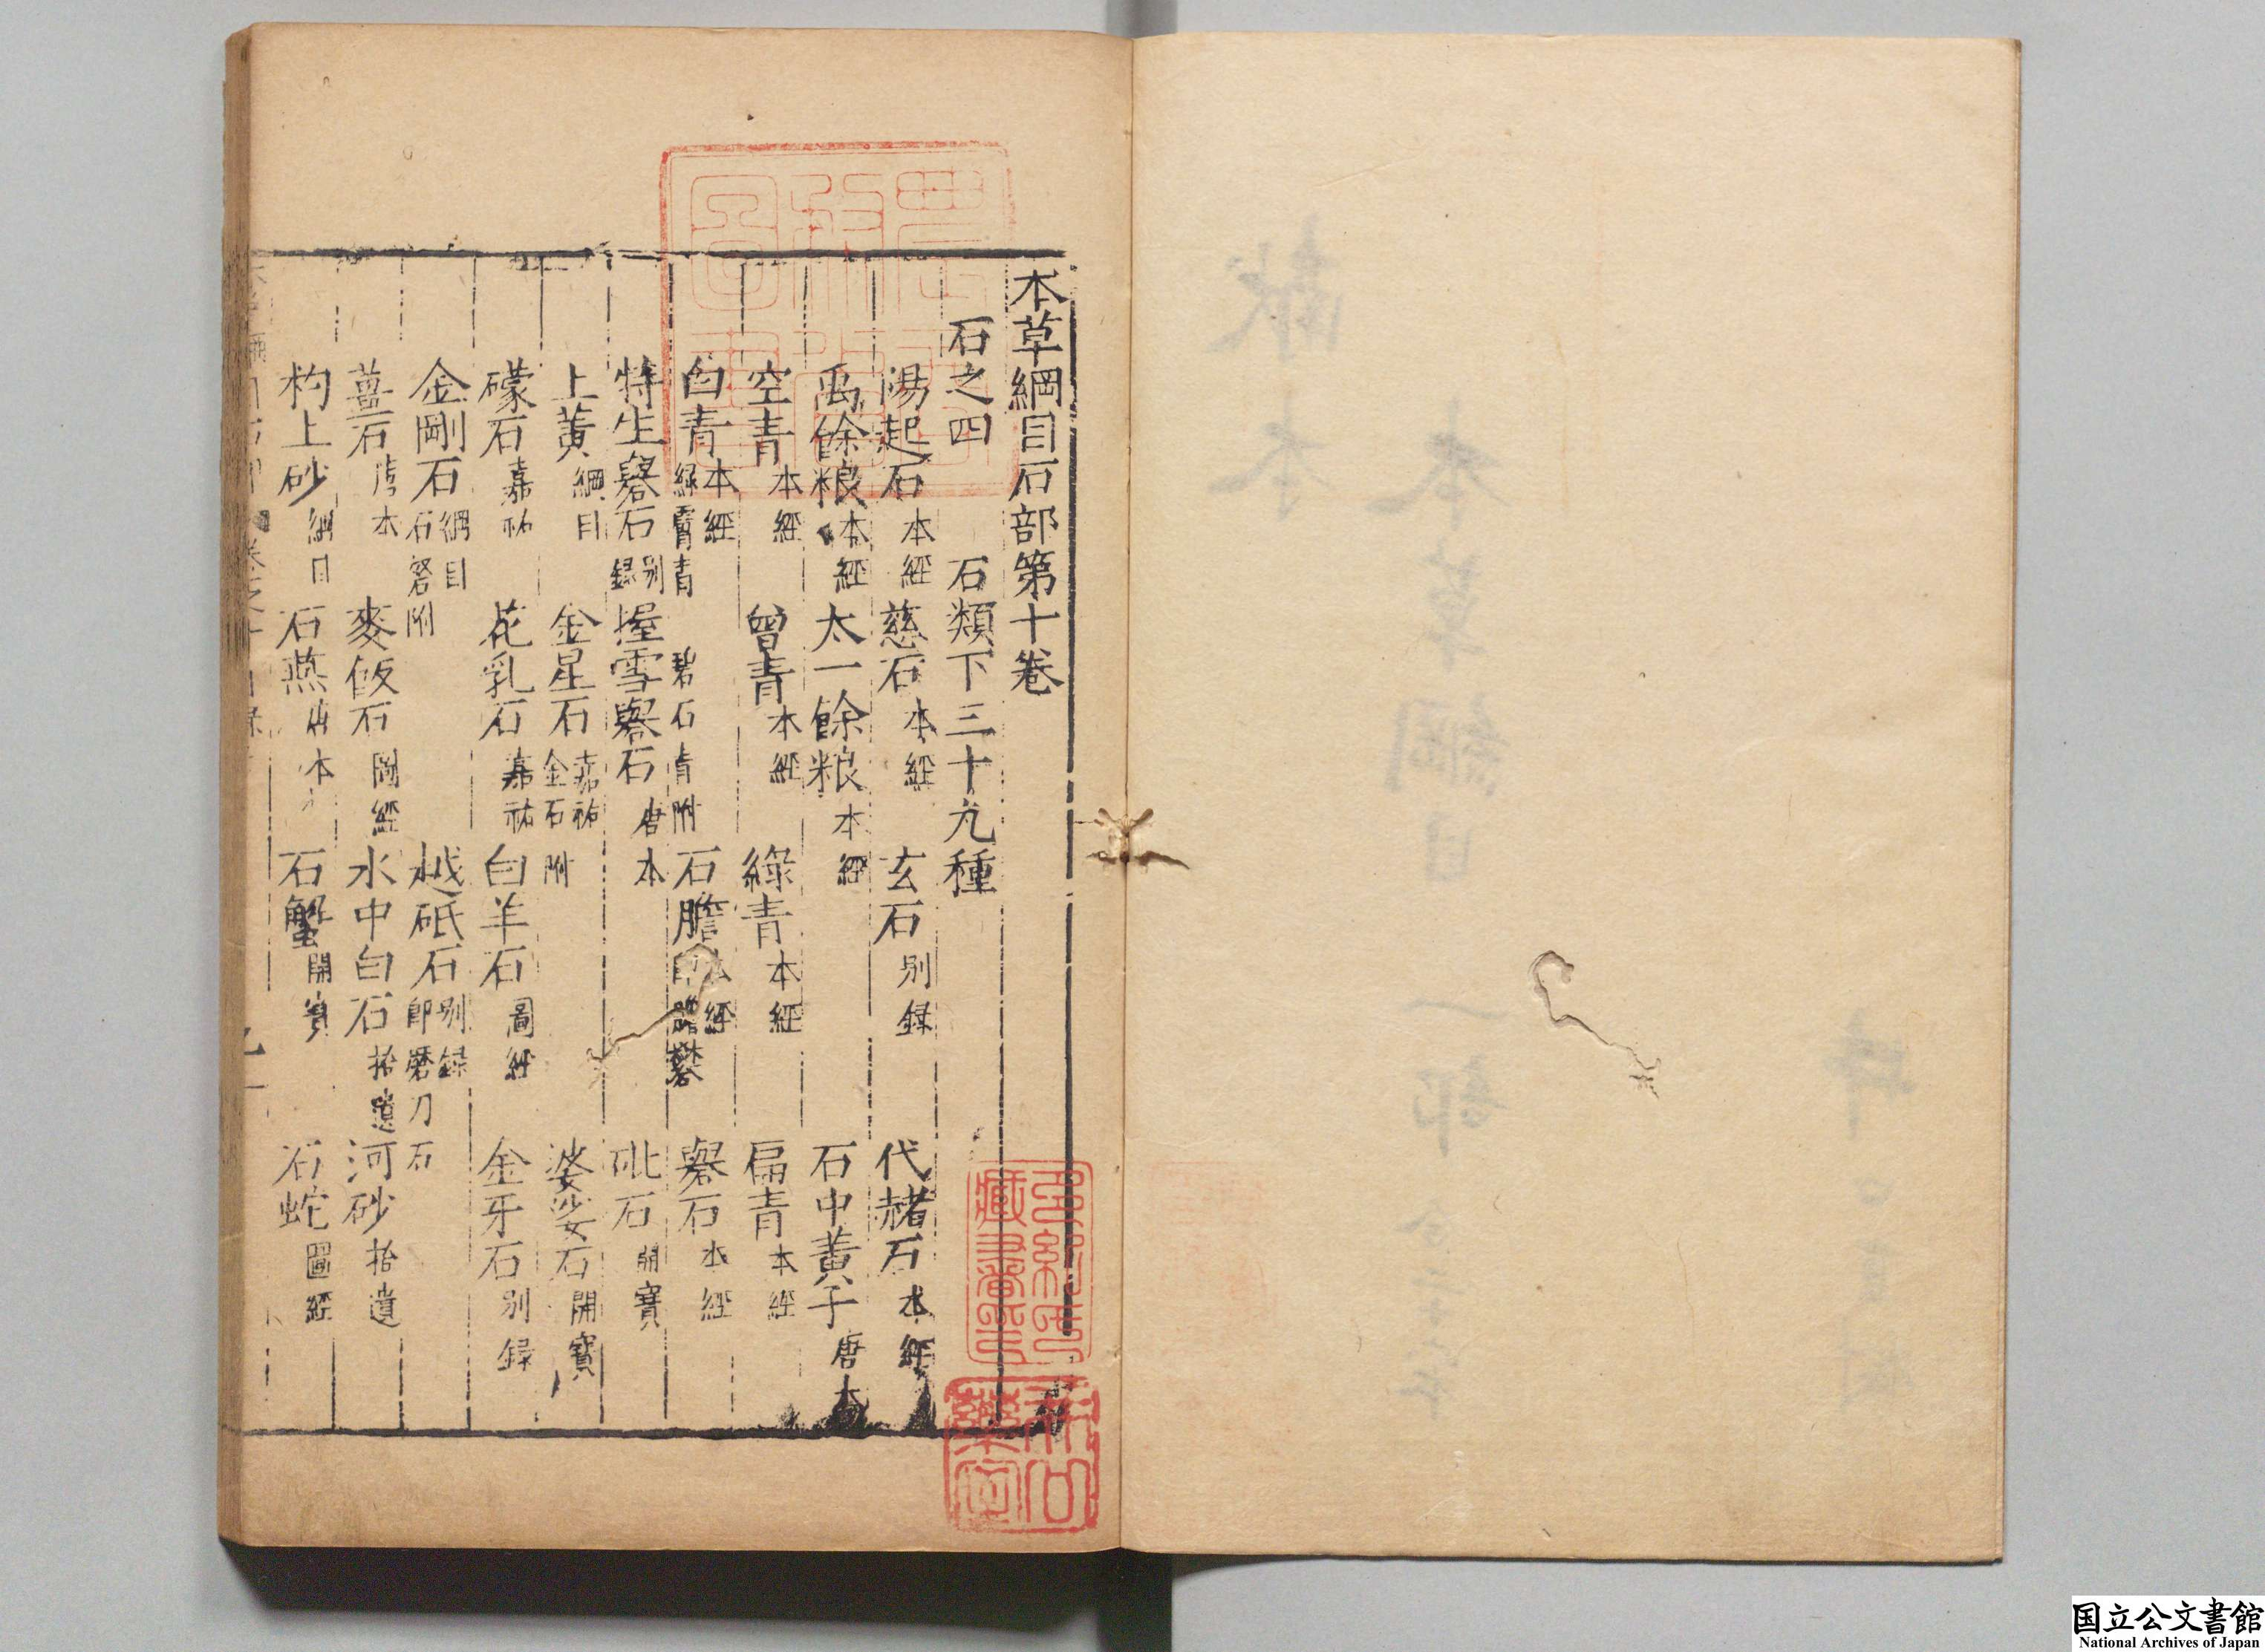 本草綱目石部第十卷
石之四　石類下三十九種
陽起石本經　慈石本經　玄石別録　代赭石本經
禹餘粮本經　太一餘粮本經　石中黃子唐本
空青本經　曾青本經　綠青本經　扁青本經
白青本經綠膚青　碧石青附　石膽本經　礜石本經
特生礜石別録　握雪礜石唐本　砒石開寶
土黃綱目　金星石嘉祐金石附　婆娑石開寶
礞石嘉祐　花乳石嘉祐　白羊石圖經　金牙石別録
金剛石綱目石砮附　越砥石別録即磨刀石
薑石唐本　麥飯石圖經　水中白石拾遺　河砂拾遺
杓上砂綱目　石燕唐本　石蟹開寶　石蛇圖經
多紀氏藏書印
献本
本草綱目　一部
国立公文書館
National Archives of Japan